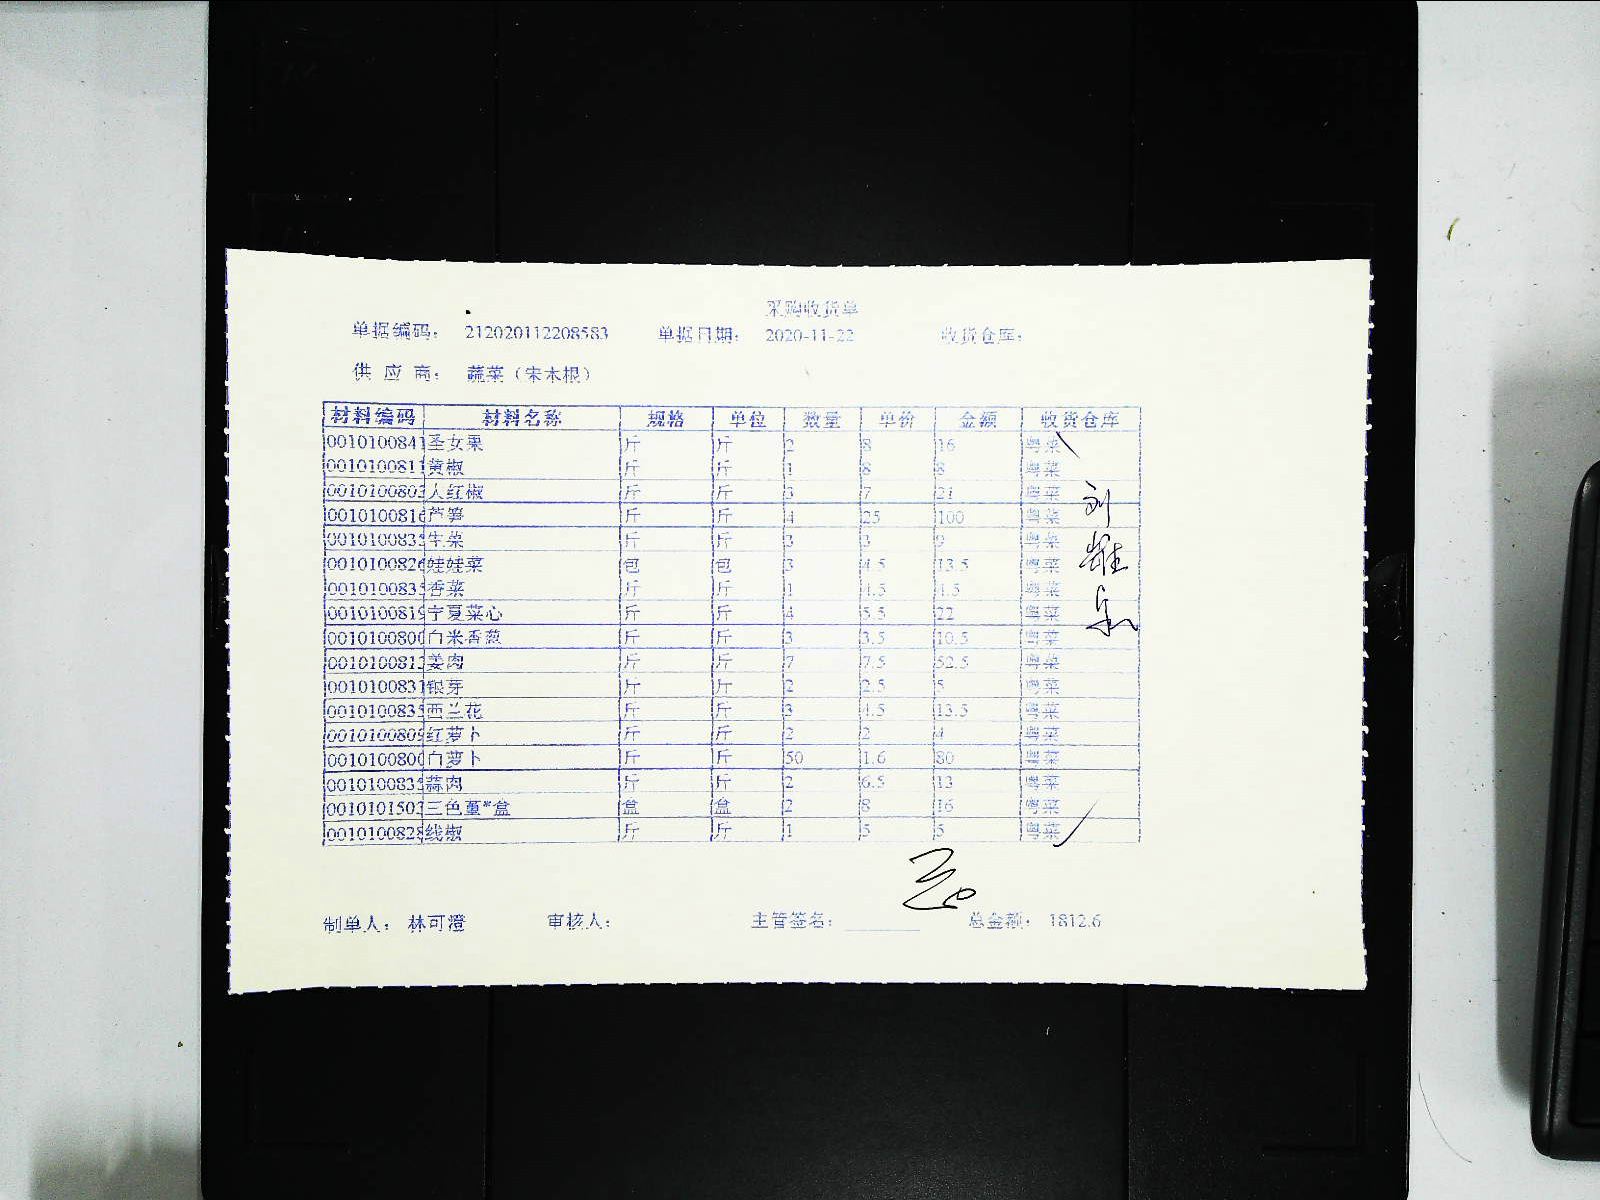 采购收货单
单据编码: 212020112208583 单据日期: 2020-11-22 收货仓库:
供 应 商: 蔬菜(宋本根)
材料编码 材料名称 规格 单位 数量 单价 金额 收货仓库
0010100841 圣女果 斤 斤 2 8 16 粤菜
0010100811 黄椒 斤 斤 1 8 8 粤菜
001010080 大红椒 斤 斤 3 7 21 粤菜
001010081 芦笋 斤 斤 4 25 100 粤菜
001010083 生菜 斤 斤 3 3 9 粤菜
001010082 娃娃菜 包 包 3 4.5 13.5 粤菜
001010083 香菜 斤 斤 1 4.5 4.5 粤菜
001010081 宁夏菜心 斤 斤 4 5.5 22 粤菜
001010080 白米香葱 斤 斤 3 3.5 10.5 粤菜
001010081 姜肉 斤 斤 7 7.5 52.5 粤菜
001010083 银芽 斤 斤 2 2.5 5 粤菜
001010083 西兰花 斤 斤 3 4.5 13.5 粤菜
001010080 红萝卜 斤 斤 2 2 4 粤菜
001010080 白萝卜 斤 斤 50 1.6 80 粤菜
001010083 蒜肉 斤 斤 2 6.5 13 粤菜
001010150 三色堇*盒 盒 盒 2 8 16 粤菜
001010082 线椒 斤 斤 1 5 5 粤菜
刘雄乐
制单人: 林可澄 审核人: 主管签名: 总金额: 1812.6